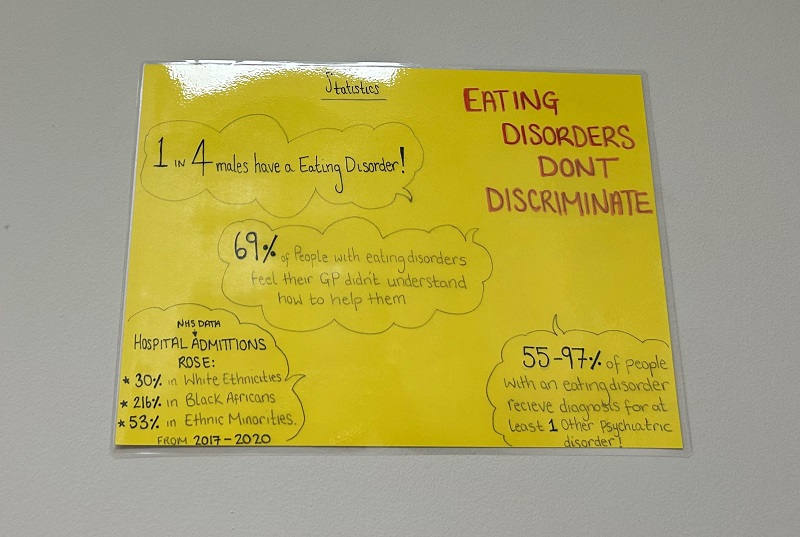 Statistics
EATING
DISORDERS
DONT
DISCRIMINATE
1 IN 4 males have a Eating Disorder!
69% of People with eating disorders
feel their GP didn't understand
how to help them
NHS DATA
HOSPITAL ADMITTIONS
ROSE:
* 30% in White Ethnicities
* 216% in Black Africans
* 53% in Ethnic Minorities.
FROM 2017-2020
55-97% of people
with an eating disorder
recieve diagnosis for at
least 1 Other Psychiatric
disorder!